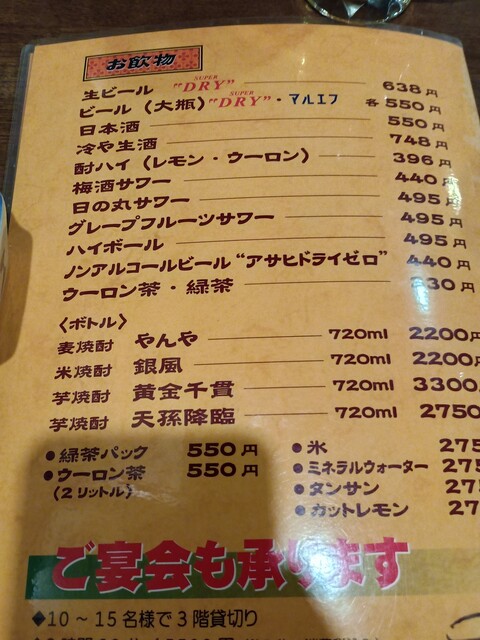 お飲物
生ビール SUPER "DRY" 638円
ビール（大瓶）SUPER "DRY"・マルエフ 各550円
日本酒 550円
冷や生酒 748円
酎ハイ（レモン・ウーロン） 396円
梅酒サワー 440円
日の丸サワー 495円
グレープフルーツサワー 495円
ハイボール 495円
ノンアルコールビール“アサヒドライゼロ” 440円
ウーロン茶・緑茶 30円
〈ボトル〉
麦焼酎 やんや 720ml 2200円
米焼酎 銀風 720ml 2200
芋焼酎 黄金千貫 720ml 3300
芋焼酎 天孫降臨 720ml 2750
●緑茶パック 550円
●ウーロン茶 550円
（2リットル）
●氷 275
●ミネラルウォーター 275
●タンサン 27
●カットレモン 27
ご宴会も承ります
◆10～15名様で3階貸切り